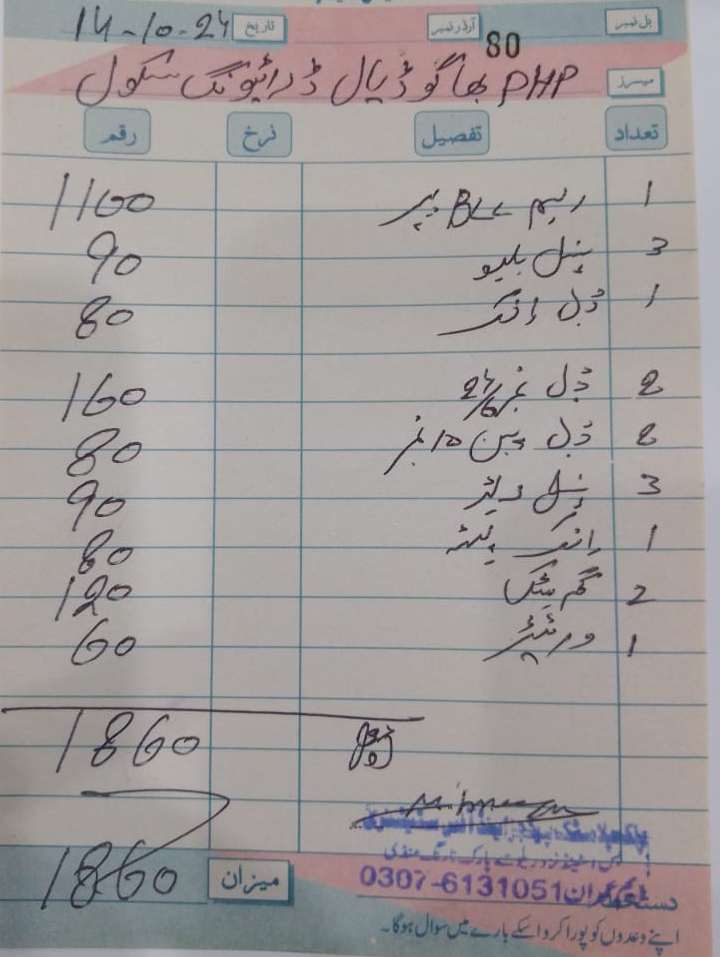 بل نمبر 80 آرڈر نمبر تاریخ 14-10-24
میسرز PHP بھاگو ڈیال ڈرائیونگ سکول
تعداد تفصیل نرخ رقم
1 ریم BLC پیپر 1100
3 پنسل بلیو 90
1 ڈبل انک 80
2 ڈبل نمبر 24/6 160
2 ڈبل پن 10 نمبر 80
3 90
1 انک پیڈ 80
2 گم سٹک 120
1 60
1860
میزان 1860
0307-6131051
دستخط
اپنے وعدوں کو پورا کرو اسکے بارے میں سوال ہوگا۔